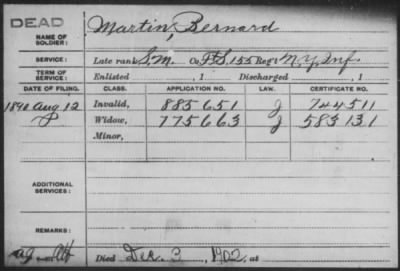 DEAD
NAME OF SOLDIER: Martin, Bernard
SERVICE: Late rank S.M., Co. F.S., 155 Reg't N.Y. Inf.
TERM OF SERVICE: Enlisted , 1 Discharged , 1
DATE OF FILING. CLASS. APPLICATION NO. LAW. CERTIFICATE NO.
1890 Aug 12 Invalid, 885651 J 744511
Widow, 775663 J 583131
Minor,
ADDITIONAL SERVICES:
REMARKS:
Died Dec. 3, 1902, at